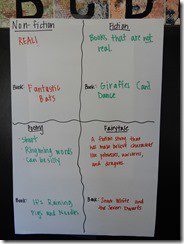 Non-fiction
REAL!
Book: Fantastic
Bats
Fiction
Books that are not
real
Book: Giraffes Can't
Dance
Poetry
Short
Rhyming words
can be silly
Book: It's Raining
Pigs and Noodles
Fairytale
A fiction story that
has make belief characters
like princess, unicorns,
and dragons.
Book: Snow White and
the Seven Dwarfs